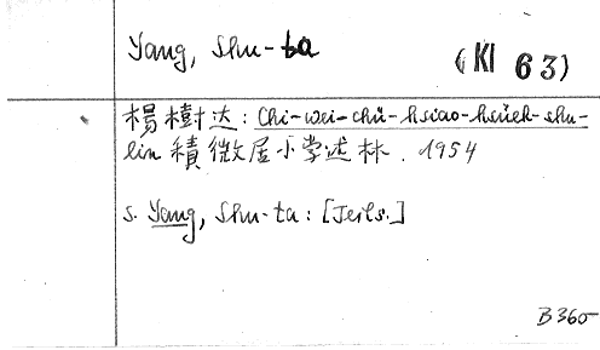 Yang, Shu-ta
(KI 63)
楊樹达: Chi-wei-chü-hsiao-hsüeh-shu-
lin 積微居小学述林. 1954
s. Yang, Shu-ta: [Teils.]
B 360